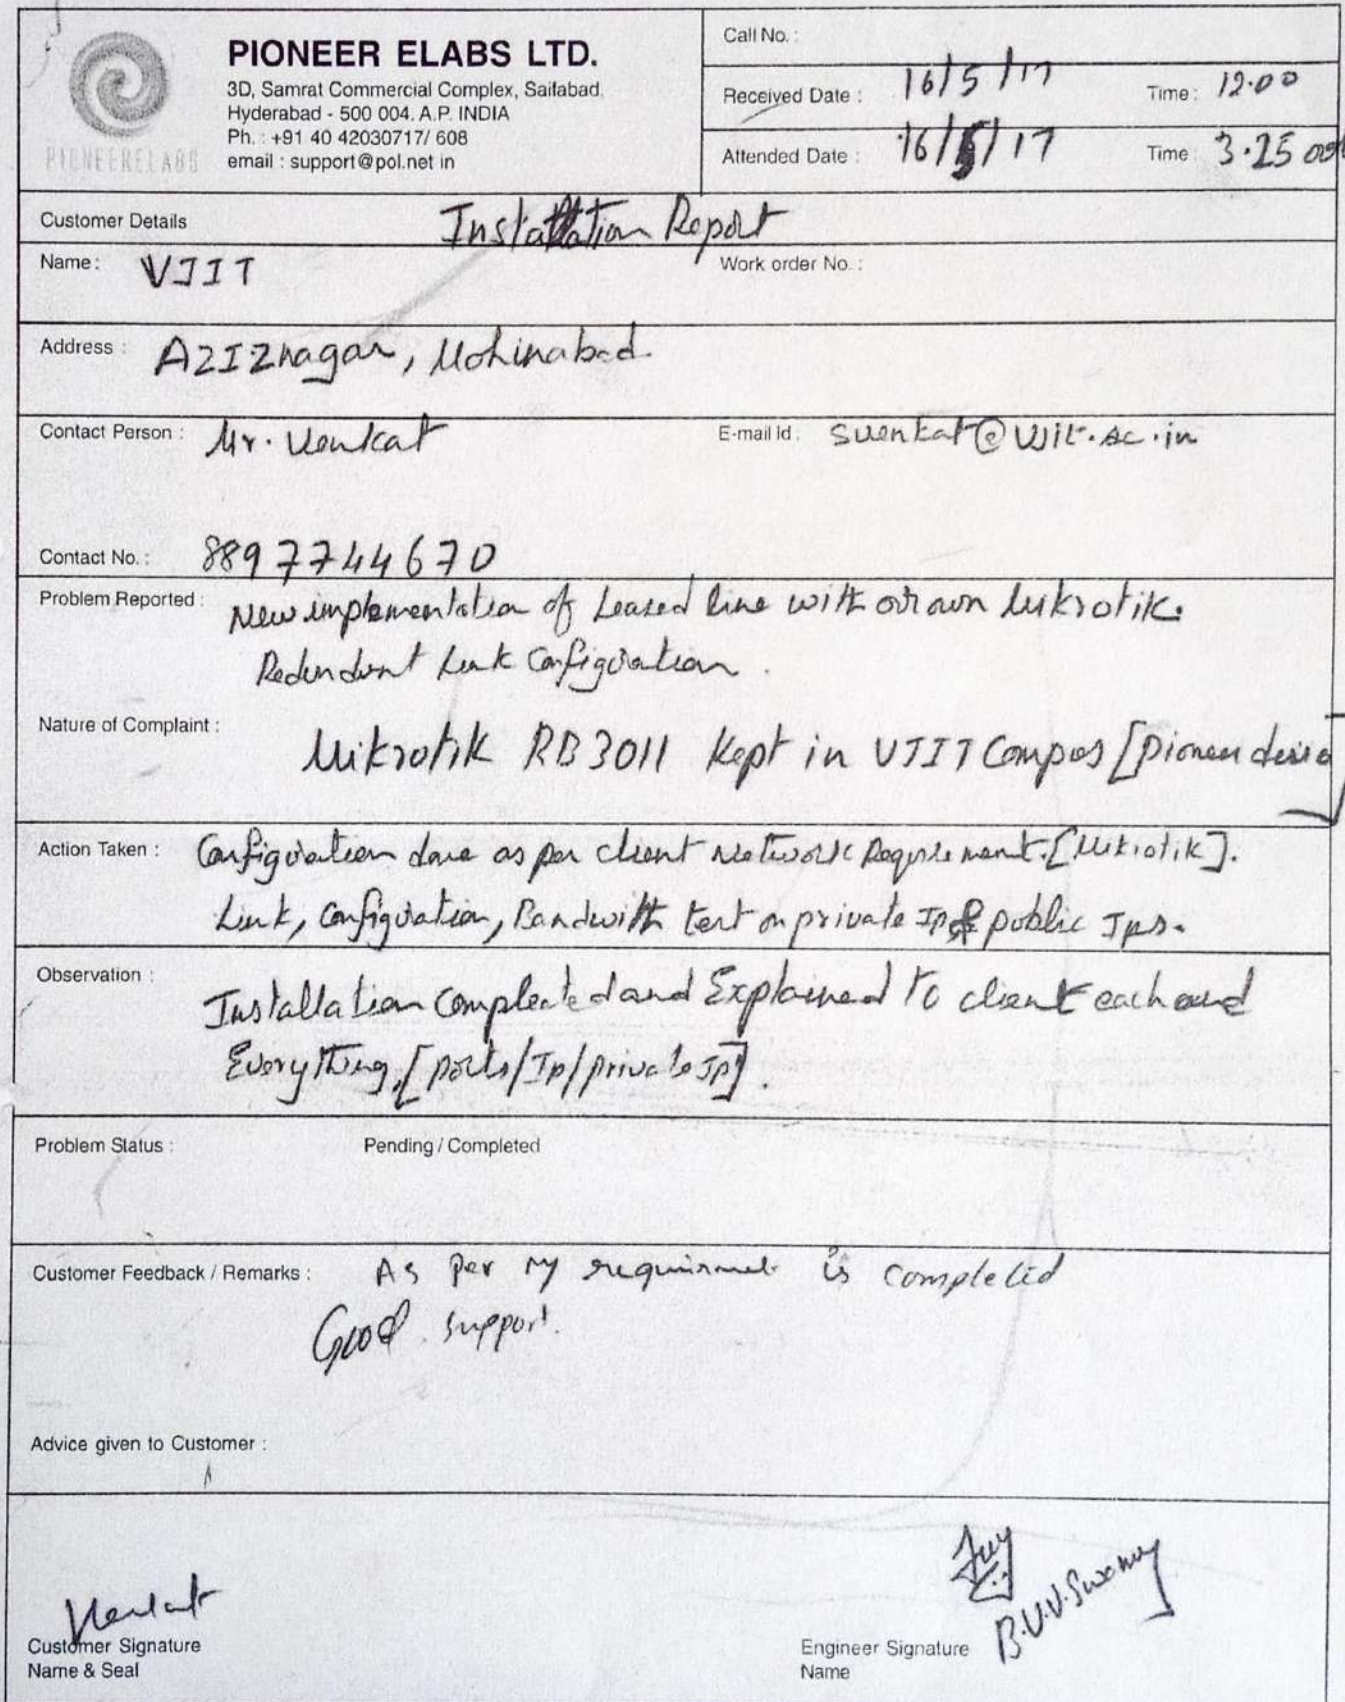 PIONEER ELABS LTD.
3D, Samrat Commercial Complex, Saifabad,
Hyderabad - 500 004. A.P. INDIA
Ph. : +91 40 42030717/ 608
email : support@pol.net in
PIONEERELABS
Call No. :
Received Date : 16/5/17 Time : 12.00
Attended Date : 16/5/17 Time : 3.25
Customer Details Installation Report
Name : VJIT Work order No. :
Address : AZIZnagar, Mohinabad.
Contact Person : Mr. Venkat E-mail id : svenkat@vjit.ac.in
Contact No. : 8897744670
Problem Reported : New implementation of Leased line with our own Mikrotik.
Redundant Link Configuration.
Nature of Complaint : Mikrotik RB3011 Kept in VJIT Campus [Pioneer device]
Action Taken : Configuration done as per client Network Requirement. [Mikrotik].
Link, Configuration, Bandwith test on private Ip & public Ips.
Observation : Installation Compleated and Explained to client each and
Everything. [ports/Ip/private Ip].
Problem Status : Pending / Completed
Customer Feedback / Remarks : As Per my requirmet is completed
Good support.
Advice given to Customer :
Venkat
B.V.V.Swamy
Customer Signature Engineer Signature
Name & Seal Name